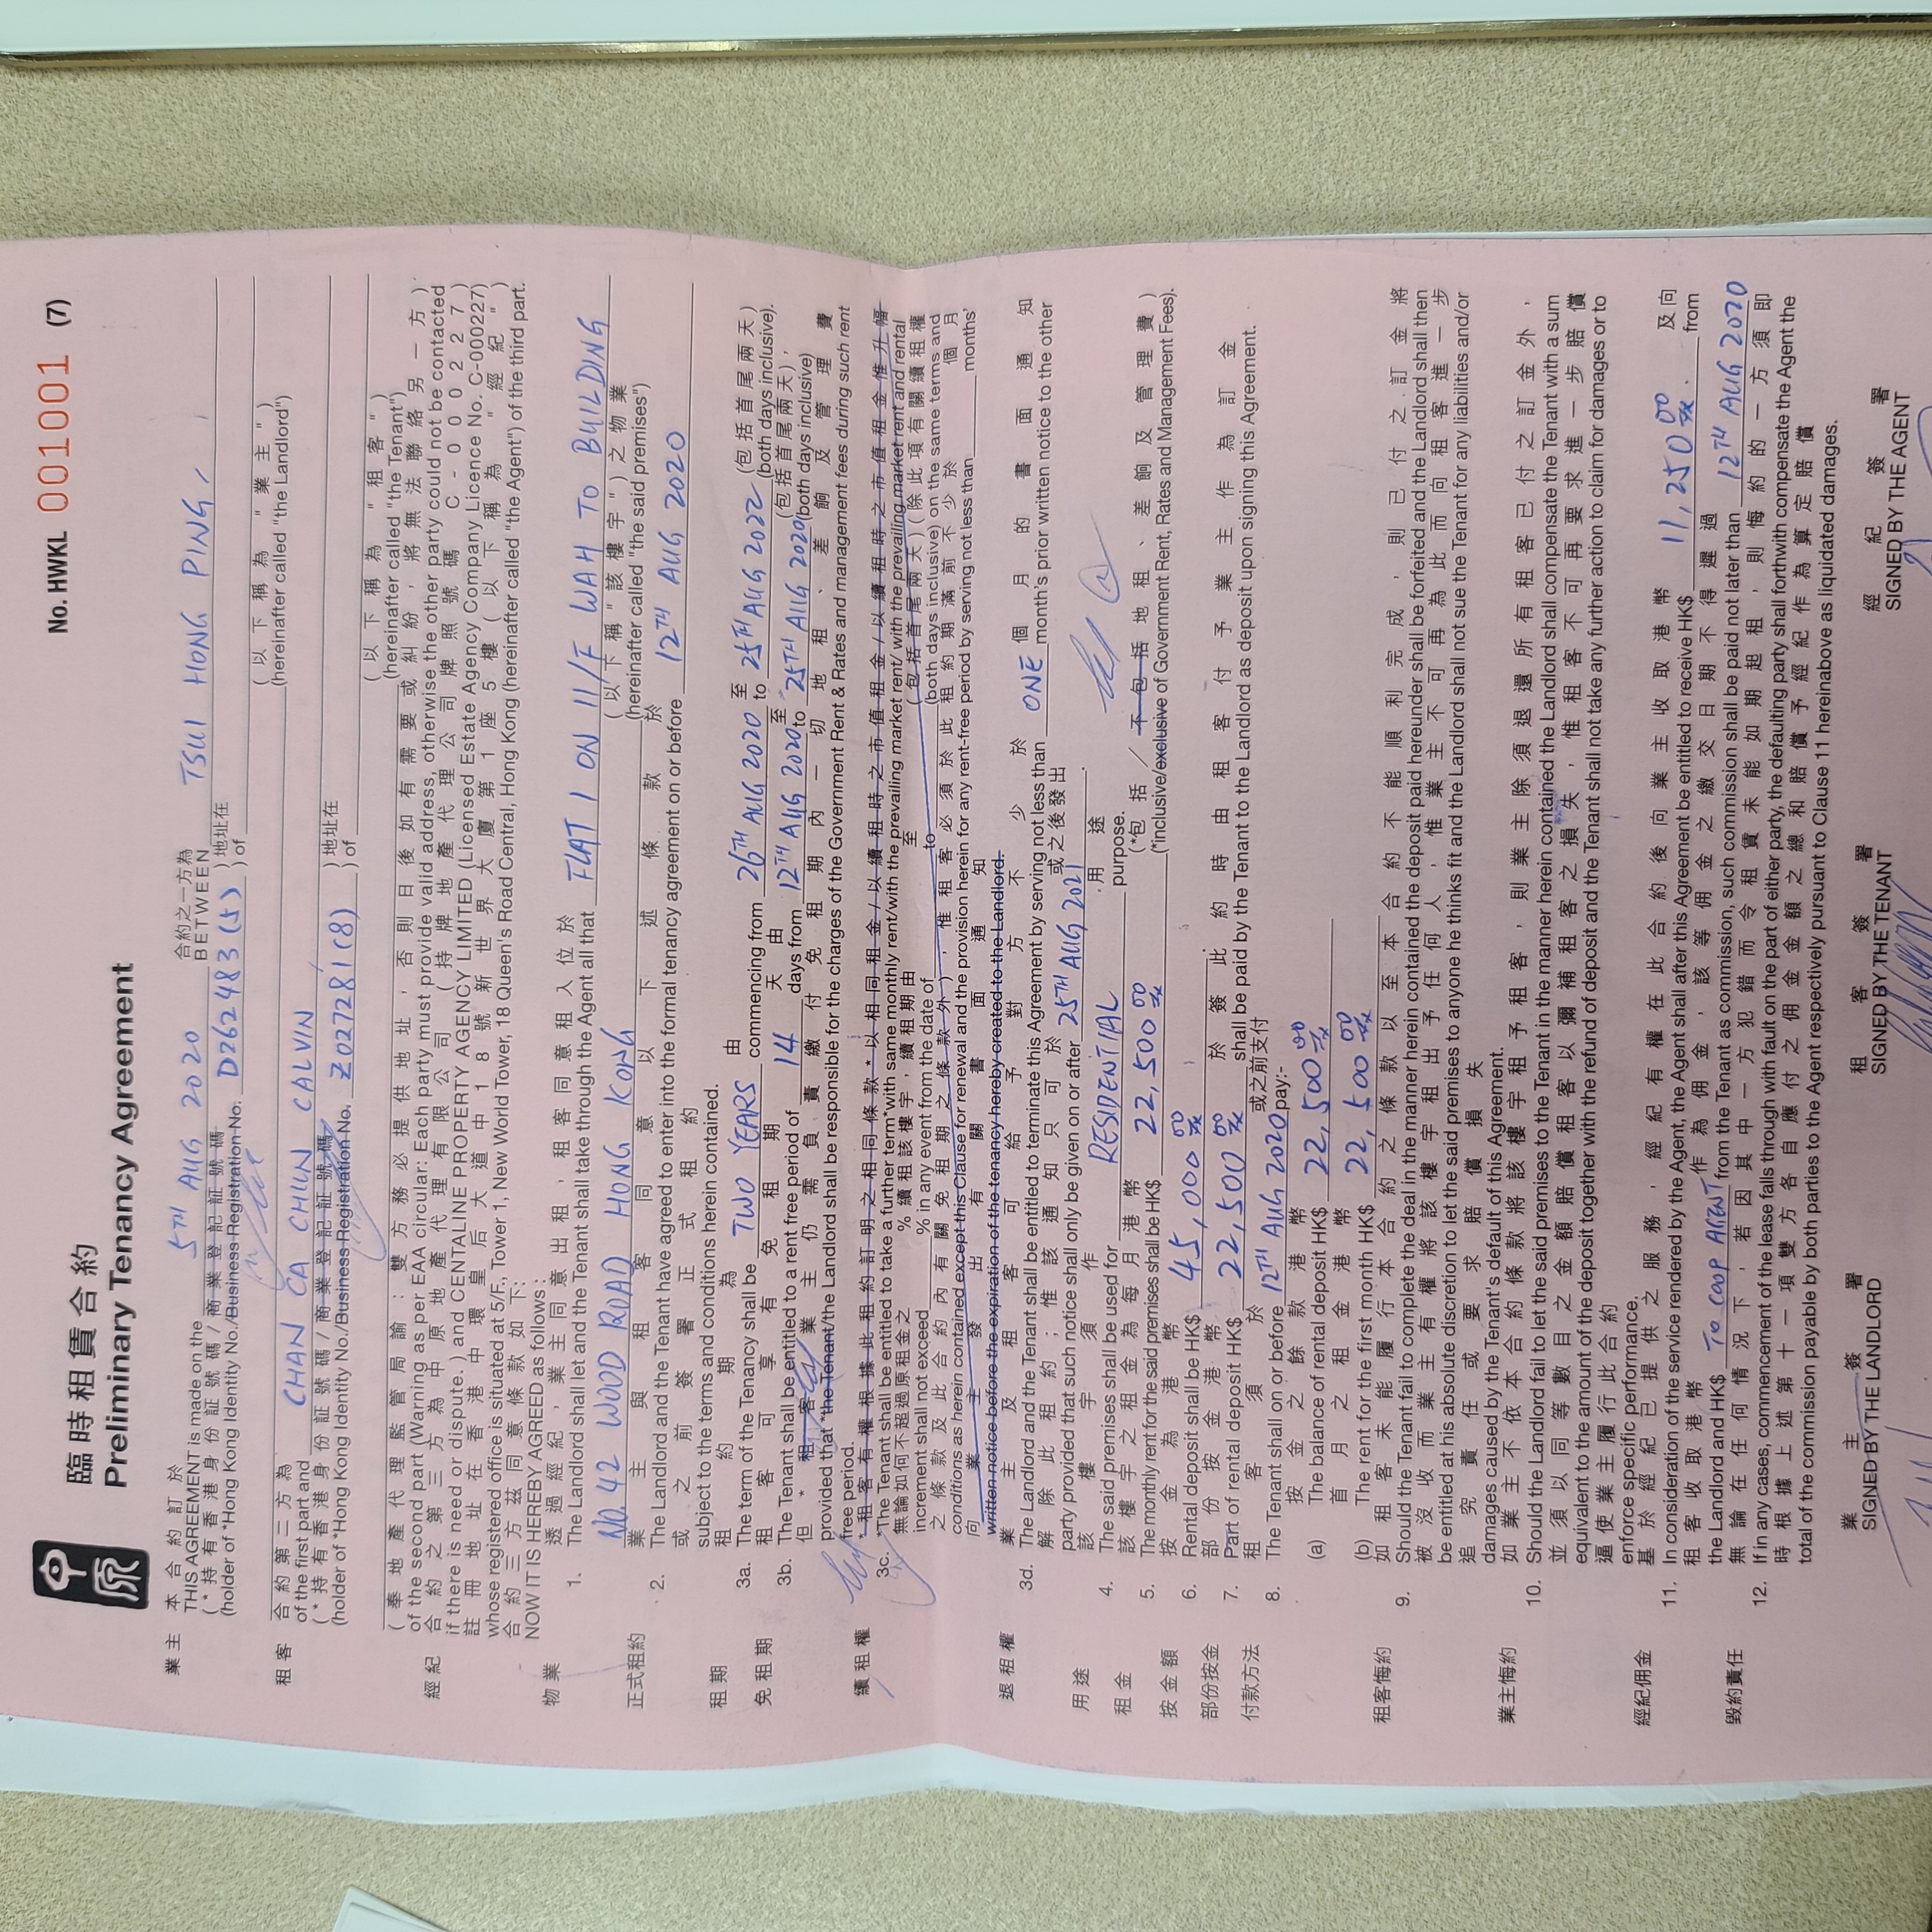 中原
臨時租賃合約
Preliminary Tenancy Agreement
No. HWKL 001001 (7)
業主 本合約訂於 5TH AUG 2020 合約之一方為 TSUI HONG PING
THIS AGREEMENT is made on the BETWEEN
(*持有香港身份証號碼/商業登記証號碼 D262483(5) )地址在
(holder of *Hong Kong Identity No./Business Registration No. ) of
(以下稱為"業主")
(hereinafter called "the Landlord")
租客 合約第二方為 CHAN CA CHUN CALVIN
of the first part and
(*持有香港身份証號碼/商業登記証號碼 Z027281(8) )地址在
(holder of *Hong Kong Identity No./Business Registration No. ) of
(以下稱為"租客")
(hereinafter called "the Tenant")
(奉地產代理監管局諭:雙方務必提供地址,否則日後如有需要或糾紛,將無法聯絡另一方)
of the second part (Warning as per EAA circular: Each party must provide valid address, otherwise the other party could not be contacted
經紀 合約之第三方為中原地產代理有限公司(持牌地產代理公司牌照號碼 C-000227)
if there is need or dispute.) and CENTALINE PROPERTY AGENCY LIMITED (Licensed Estate Agency Company Licence No. C-000227)
註冊地址在香港中環皇后大道中18號新世界大廈第1座5樓(以下稱為"經紀")
whose registered office is situated at 5/F., Tower 1, New World Tower, 18 Queen's Road Central, Hong Kong (hereinafter called "the Agent") of the third part.
合約三方茲同意條款如下:
NOW IT IS HEREBY AGREED as follows :
物業 透過經紀,業主同意出租,租客同意租入位於 FLAT 1 ON 11/F WAH TO BUILDING
1. The Landlord shall let and the Tenant shall take through the Agent all that
NO. 42 WOOD ROAD HONG KONG (以下稱"該樓宇")之物業
(hereinafter called "the said premises")
正式租約 業主與租客同意以下述條款於 12TH AUG 2020
2. The Landlord and the Tenant have agreed to enter into the formal tenancy agreement on or before
或之前簽署正式租約
subject to the terms and conditions herein contained.
租期 租約期為 TWO YEARS 由 26TH AUG 2020 至 25TH AUG 2022 (包括首尾兩天)
3a. The term of the Tenancy shall be commencing from to (both days inclusive).
免租期 租客可享有免租期 14 天由 12TH AUG 2020 至 25TH AUG 2020 (包括首尾兩天),
3b. The Tenant shall be entitled to a rent free period of days from to (both days inclusive)
但*租客/業主仍需負責繳付免租期內一切地租、差餉及管理費
provided that *the Tenant/the Landlord shall be responsible for the charges of the Government Rent & Rates and management fees during such rent
free period.
續租權 *租客有權根據此租約訂明之相同條款*以相同租金/以續租時之市值租金/以續租時之市值租金惟升幅
3c. *The Tenant shall be entitled to take a further term *with same monthly rent/with the prevailing market rent/with the prevailing market rent and rental
無論如何不超過原租金之 % 續租該樓宇,續租期由 至 (包括首尾兩天)(除此項有關續租權
increment not exceed % in any event from the date of to (both days inclusive) on the same terms and
之條款及此合約內有關免租期之條款外),惟租客必須於此租約期滿前不少於 個月
conditions as herein contained except this Clause for renewal and the provision herein for any rent-free period by serving not less than months'
向業主發出有關書面通知
written notice before the expiration of the tenancy hereby created to the Landlord.
退租權 業主及租客可給予對方不少於 ONE 個月的書面通知
3d. The Landlord and the Tenant shall be entitled to terminate this Agreement by serving not less than month's prior written notice to the other
解除此租約;惟該通知只可於 25TH AUG 2021 或之後發出
party provided that such notice shall only be given on or after .
用途 該樓宇須作 RESIDENTIAL 用途.
4. The said premises shall be used for purpose.
租金 該樓宇之租金為每月港幣 22,500 00/xx (*包括/不包括地租、差餉及管理費)
5. The monthly rent for the said premises shall be HK$ (*inclusive/exclusive of Government Rent, Rates and Management Fees).
按金額 按金為港幣 45,000 00/xx
6. Rental deposit shall be HK$ .
部份按金 部份按金港幣 22,500 00/xx 於簽此約時由租客付予業主作為訂金
7. Part of rental deposit HK$ shall be paid by the Tenant to the Landlord as deposit upon signing this Agreement.
付款方法 租客須於 12TH AUG 2020 或之前支付
8. The Tenant shall on or before pay:-
按金之餘款港幣 22,500 00/xx
(a) The balance of rental deposit HK$
首月之租金港幣 22,500 00/xx
(b) The rent for the first month HK$
租客悔約 如租客未能履行本合約之條款以至本合約不能順利完成,則已付之訂金將
9. Should the Tenant fail to complete the deal in the manner herein contained the deposit paid hereunder shall be forfeited and the Landlord shall then
被沒收而業主有權將該樓宇租出予任何人,惟業主不可再為此而向租客進一步
be entitled at his absolute discretion to let the said premises to anyone he thinks fit and the Landlord shall not sue the Tenant for any liabilities and/or
追究責任或要求賠償損失
damages caused by the Tenant's default of this Agreement.
業主悔約 如業主不依本合約條款將該樓宇租予租客,則業主除須退還所有租客已付之訂金外,
10. Should the Landlord fail to let the said premises to the Tenant in the manner herein contained the Landlord shall compensate the Tenant with a sum
並須以同等數目之金額賠償租客以彌補租客之損失,惟租客不可再要求進一步賠償
equivalent to the amount of the deposit together with the refund of deposit and the Tenant shall not take any further action to claim for damages or to
逼使業主履行此合約
enforce specific performance.
經紀佣金 基於經紀已提供之服務,經紀有權在此合約後向業主收取港幣 11,250 00/xx. 及向
11. In consideration of the service rendered by the Agent, the Agent shall after this Agreement be entitled to receive HK$ from
租客收取港幣 TO COOP AGENT 作為佣金,該等佣金之繳交日期不得遲過 12TH AUG 2020
the Landlord and HK$ from the Tenant as commission, such commission shall be paid not later than
毀約責任 無論在任何情況下,若因其中一方犯錯而令租賃未能如期起租,則悔約的一方須即
12. If in any cases, commencement of the lease falls through with fault on the part of either party, the defaulting party shall forthwith compensate the Agent the
時根據上述第十一項雙方各自應付之佣金金額之總和賠償予經紀作為算定賠償
total of the commission payable by both parties to the Agent respectively pursuant to Clause 11 hereinabove as liquidated damages.
業主簽署 租客簽署 經紀簽署
SIGNED BY THE LANDLORD SIGNED BY THE TENANT SIGNED BY THE AGENT